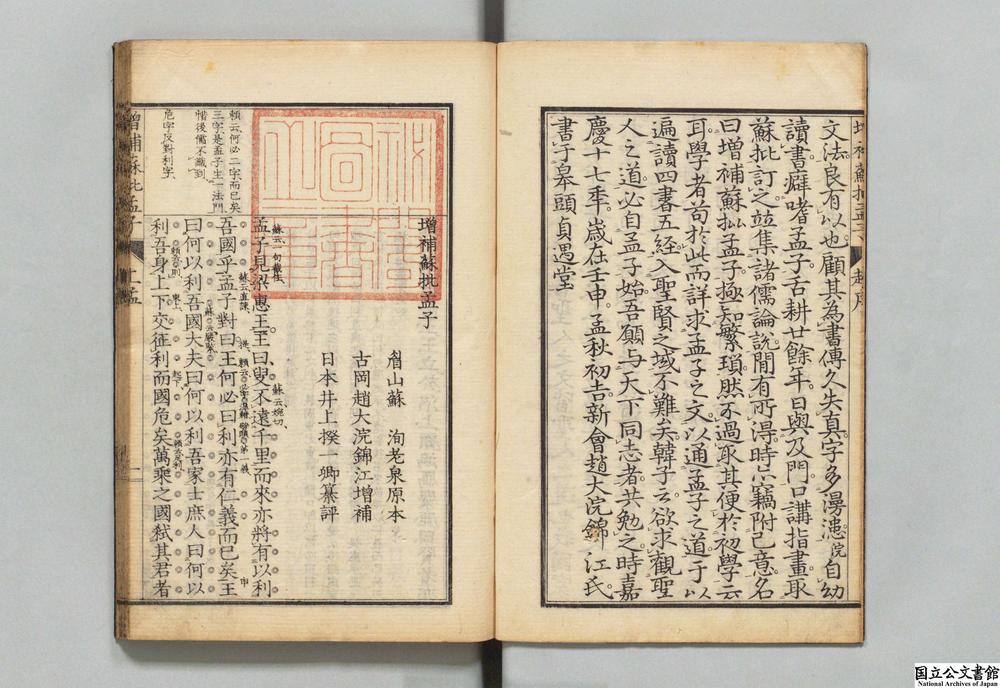 增補蘇批孟子 趙序
文法良有以也顧其為書傳久失真字多漫漶浣自幼
讀書癖嗜孟子古耕廿餘年日與及門口講指畫取
蘇批訂之並集諸儒論說閒有所得時以竊附己意名
曰增補蘇批孟子極知繁瑣然不過取其便於初學云
耳學者苟於此而詳求孟子之文以通孟子之道于以
遍讀四書五經入聖賢之域不難矣韓子云欲求觀聖
人之道必自孟子始吾願与天下同志者共勉之時嘉
慶十七年歲在壬申孟秋初吉新會趙大浣錦江氏
書于皋頭貞遇堂
增補蘇批孟子
眉山蘇 洵老泉原本
古岡趙大浣錦江增補
日本井上揆一卿纂評
賴云何必二字而已矣
三字是孟子生一法門
惜後儒不識到
危字反對利字
蘇云一句截住
孟子見梁惠王王曰叟不遠千里而來亦將有以利
蘇云婉切
吾國乎孟子對曰王何必曰利亦有仁義而已矣王
蘇云直諫
曰何以利吾國大夫曰何以利吾家士庶人曰何以
利吾身上下交征利而國危矣萬乘之國弒其君者
增補蘇批孟子 上孟 一
国立公文書館
National Archives of Japan